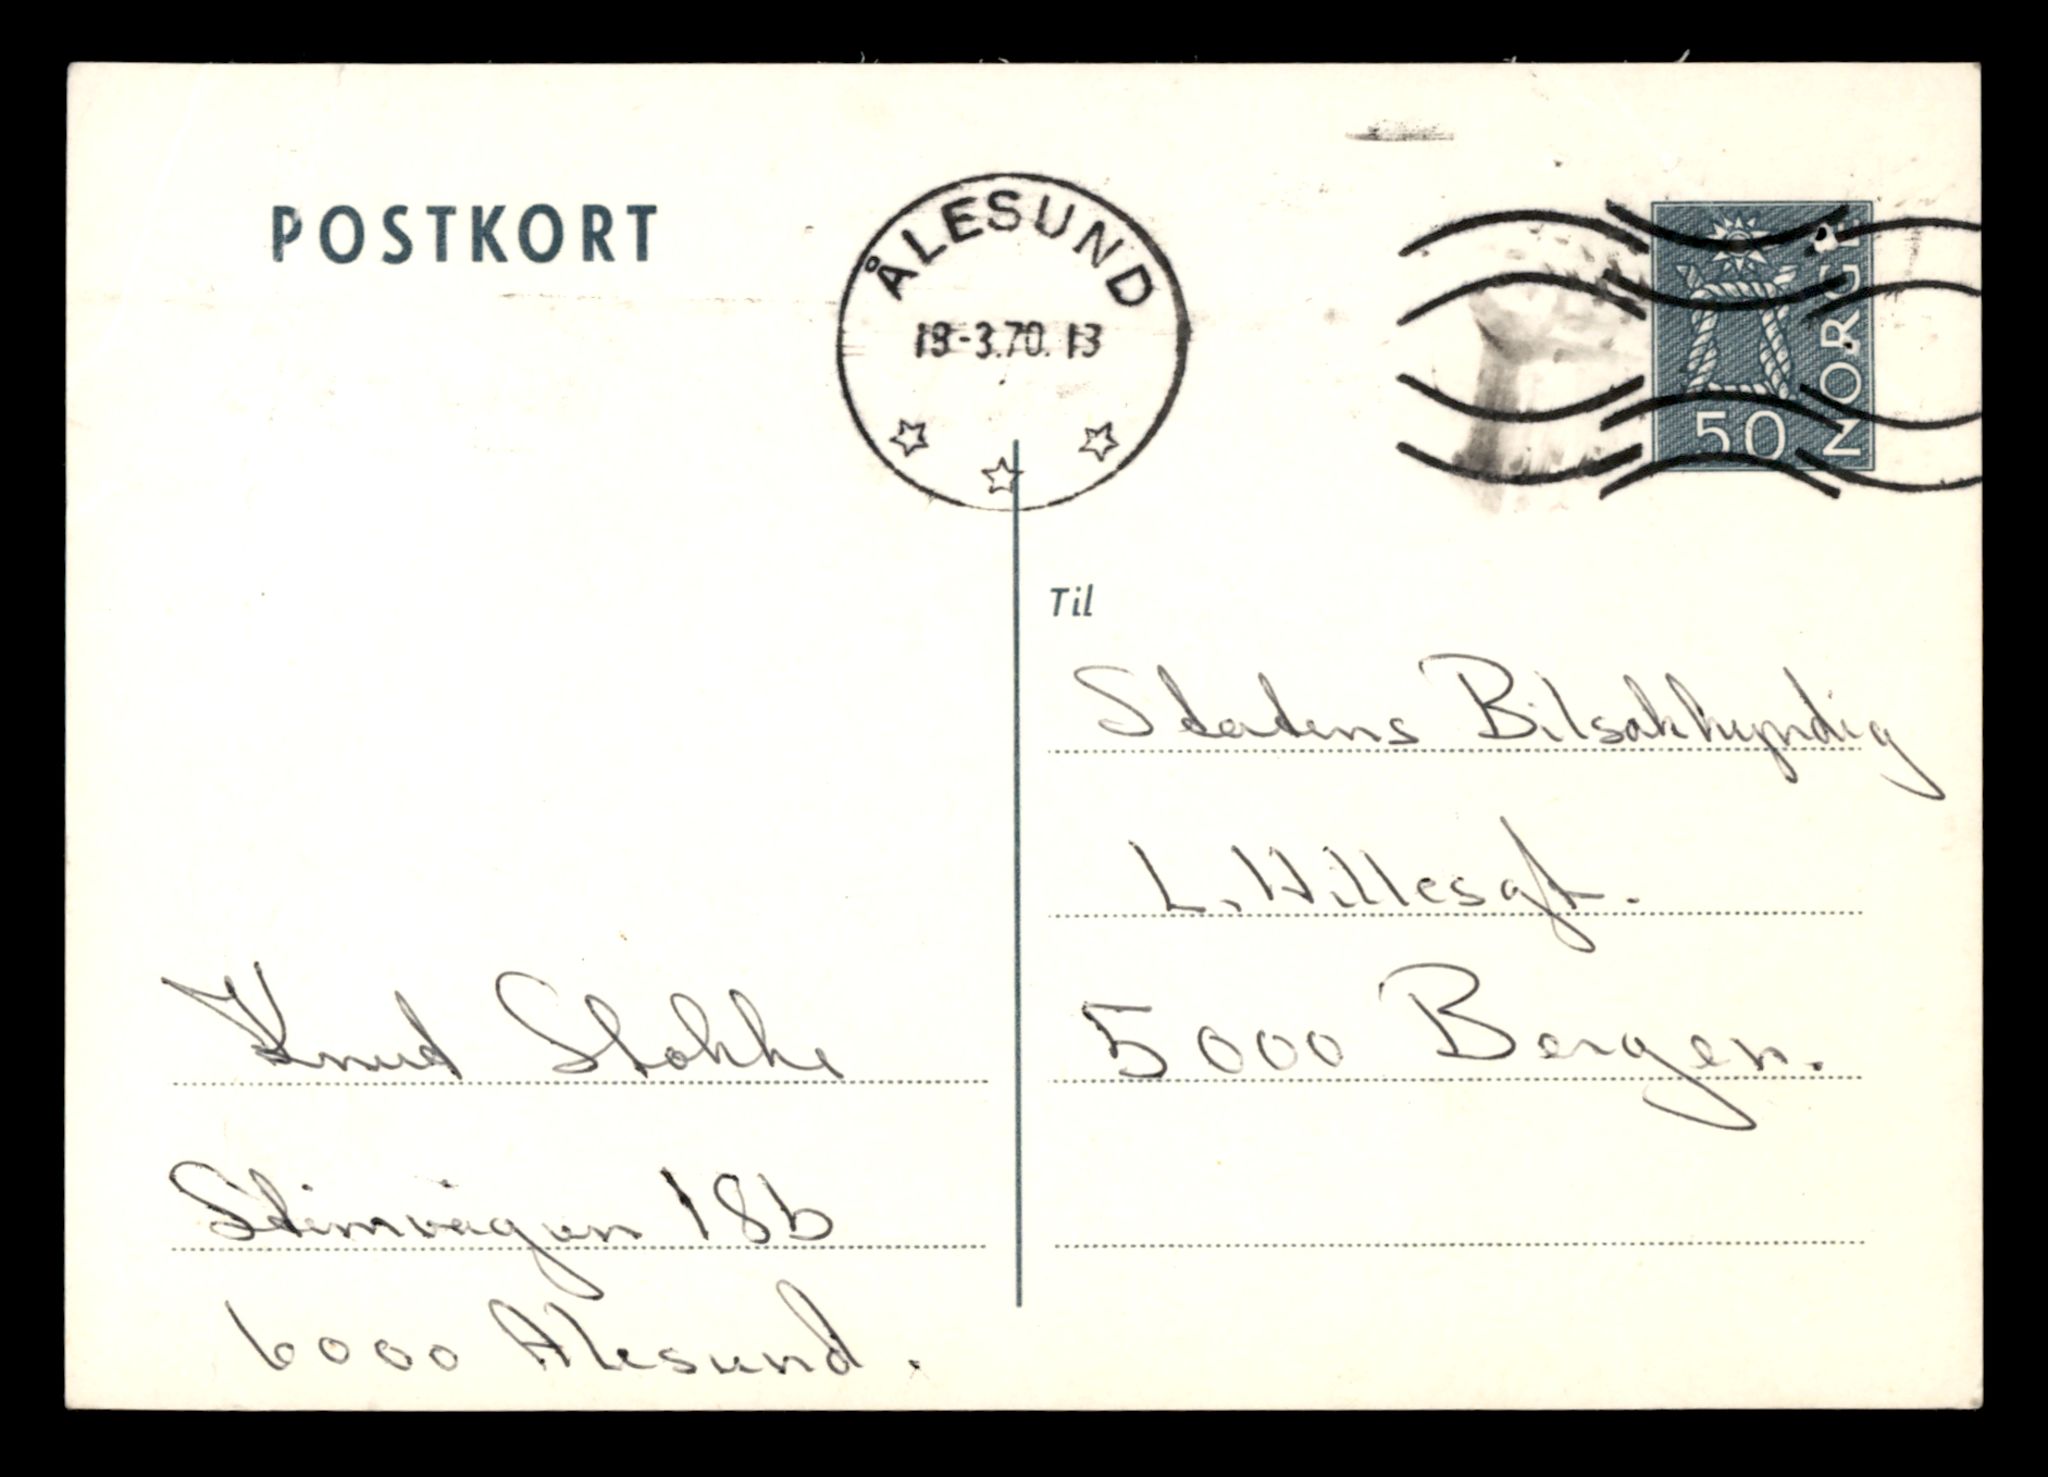 POSTKORT
ÅLESUND
18-3.70.13
NORGE
50
Til
Statens Bilsakkyndig
L. Hillesgt.
5000 Bergen.
Knud Stokke
18b
6000 Ålesund.